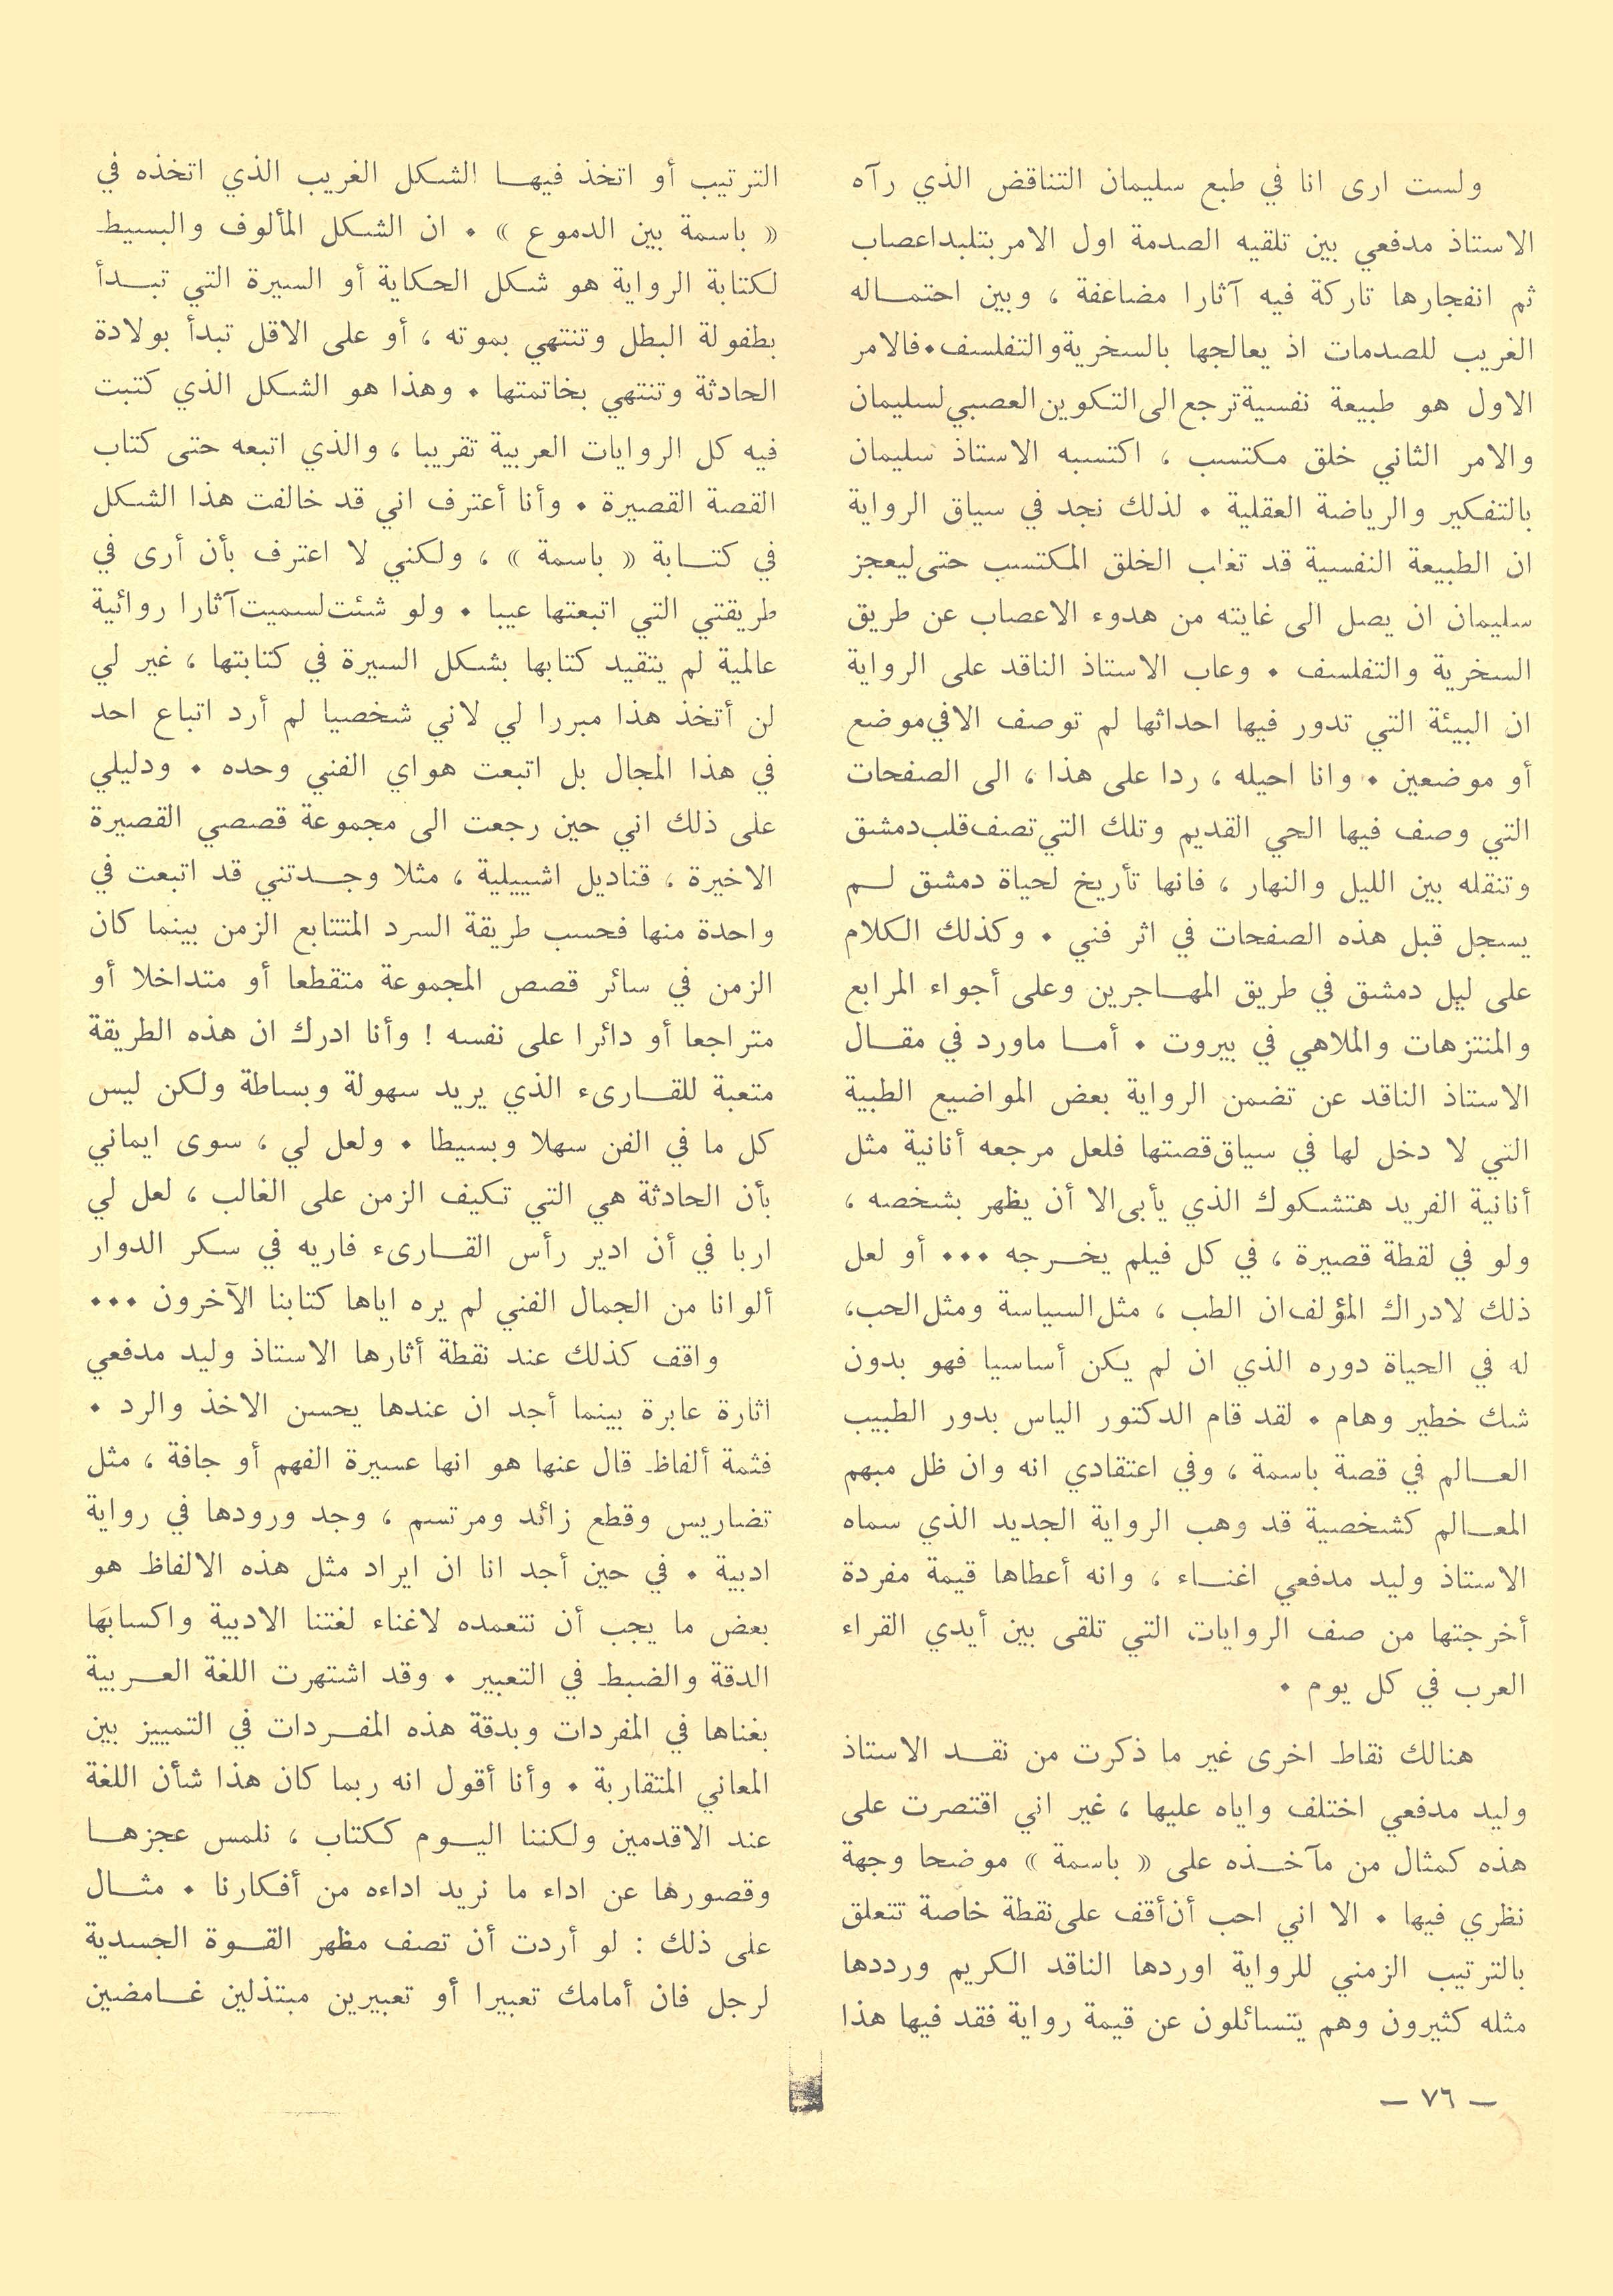 ولست ارى انا في طبع سليمان التناقض الذي رآه
الاستاذ مدفعي بين تلقيه الصدمة اول الامر بتلبد اعصاب
ثم انفجارها تاركة فيه آثارا مضاعفة ، وبين احتماله
الغريب للصدمات اذ يعالجها بالسخرية والتفلسف . فالامر
الاول هو طبيعة نفسية ترجع الى التكوين العصبي لسليمان
والامر الثاني خلق مكتسب ، اكتسبه الاستاذ سليمان
بالتفكير والرياضة العقلية . لذلك نجد في سياق الرواية
ان الطبيعة النفسية قد تغلب الخلق المكتسب حتى ليعجز
سليمان ان يصل الى غايته من هدوء الاعصاب عن طريق
السخرية والتفلسف . وعاب الاستاذ الناقد على الرواية
ان البيئة التي تدور فيها احداثها لم توصف الا في موضع
أو موضعين . وانا احيله ، ردا على هذا ، الى الصفحات
التي وصف فيها الحي القديم وتلك التي تصف قلب دمشق
وتنقله بين الليل والنهار ، فانها تأريخ لحياة دمشق لم
يسجل قبل هذه الصفحات في اثر فني . وكذلك الكلام
على ليل دمشق في طريق المهاجرين وعلى أجواء المرابع
والمنتزهات والملاهي في بيروت . أما ماورد في مقال
الاستاذ الناقد عن تضمن الرواية بعض المواضيع الطبية
التي لا دخل لها في سياق قصتها فلعل مرجعه أنانية مثل
أنانية الفريد هتشكوك الذي يأبى الا أن يظهر بشخصه ،
ولو في لقطة قصيرة ، في كل فيلم يخرجه ... أو لعل
ذلك لادراك المؤلف ان الطب ، مثل السياسة ومثل الحب،
له في الحياة دوره الذي ان لم يكن أساسيا فهو بدون
شك خطير وهام . لقد قام الدكتور الياس بدور الطبيب
العالم في قصة باسمة ، وفي اعتقادي انه وان ظل مبهم
المعالم كشخصية قد وهب الرواية الجديد الذي سماه
الاستاذ وليد مدفعي اغناء ، وانه أعطاها قيمة مفردة
أخرجتها من صنف الروايات التي تلقى بين أيدي القراء
العرب في كل يوم .
هنالك نقاط اخرى غير ما ذكرت من نقد الاستاذ
وليد مدفعي اختلف واياه عليها ، غير اني اقتصرت على
هذه كمثال من مآخذه على « باسمة » موضحا وجهة
نظري فيها . الا اني احب أن أقف على نقطة خاصة تتعلق
بالترتيب الزمني للرواية اوردها الناقد الكريم ورددها
مثله كثيرون وهم يتسائلون عن قيمة رواية فقد فيها هذا
الترتيب أو اتخذ فيها الشكل الغريب الذي اتخذه في
« باسمة بين الدموع » . ان الشكل المألوف والبسيط
لكتابة الرواية هو شكل الحكاية أو السيرة التي تبدأ
بطفولة البطل وتنتهي بموته ، أو على الاقل تبدأ بولادة
الحادثة وتنتهي بخاتمتها . وهذا هو الشكل الذي كتبت
فيه كل الروايات العربية تقريبا ، والذي اتبعه حتى كتاب
القصة القصيرة . وأنا أعترف اني قد خالفت هذا الشكل
في كتابة « باسمة » ، ولكني لا اعترف بأن أرى في
طريقتي التي اتبعتها عيبا . ولو شئت لسميت آثارا روائية
عالمية لم يتقيد كتابها بشكل السيرة في كتابتها ، غير لي
لن أتخذ هذا مبررا لي لاني شخصيا لم أرد اتباع احد
في هذا المجال بل اتبعت هواي الفني وحده . ودليلي
على ذلك اني حين رجعت الى مجموعة قصصي القصيرة
الاخيرة ، قناديل اشبيلية ، مثلا وجدتني قد اتبعت في
واحدة منها فحسب طريقة السرد المتتابع الزمن بينما كان
الزمن في سائر قصص المجموعة متقطعا أو متداخلا أو
متراجعا أو دائرا على نفسه ! وأنا ادرك ان هذه الطريقة
متعبة للقارىء الذي يريد سهولة وبساطة ولكن ليس
كل ما في الفن سهلا وبسيطا . ولعل لي ، سوى ايماني
بأن الحادثة هي التي تكيف الزمن على الغالب ، لعل لي
اربا في أن ادير رأس القارىء فاريه في سكر الدوار
ألوانا من الجمال الفني لم يره اياها كتابنا الآخرون ...
واقف كذلك عند نقطة أثارها الاستاذ وليد مدفعي
اثارة عابرة بينما أجد ان عندها يحسن الاخذ والرد .
فثمة ألفاظ قال عنها هو انها عسيرة الفهم أو جافة ، مثل
تضاريس وقطع زائد ومرتسم ، وجد ورودها في رواية
ادبية . في حين أجد انا ان ايراد مثل هذه الالفاظ هو
بعض ما يجب أن نتعمده لاغناء لغتنا الادبية واكسابها
الدقة والضبط في التعبير . وقد اشتهرت اللغة العربية
بغناها في المفردات وبدقة هذه المفردات في التمييز بين
المعاني المتقاربة . وأنا أقول انه ربما كان هذا شأن اللغة
عند الاقدمين ولكننا اليوم ككتاب ، نلمس عجزها
وقصورها عن اداء ما نريد اداءه من أفكارنا . مثال
على ذلك : لو أردت أن تصف مظهر القوة الجسدية
لرجل فان أمامك تعبيرا أو تعبيرين مبتذلين غامضين
— ٧٦ —